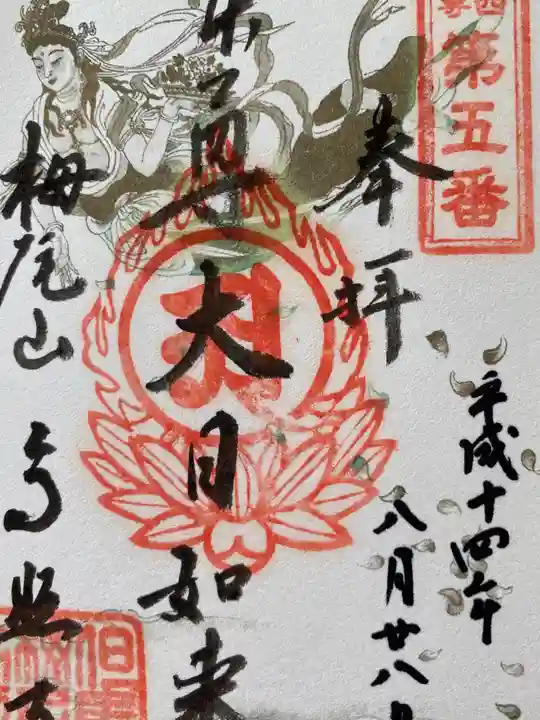 第五番
奉拝
平成十四年
八月廿八日
尊大日如来
栂尾山高照